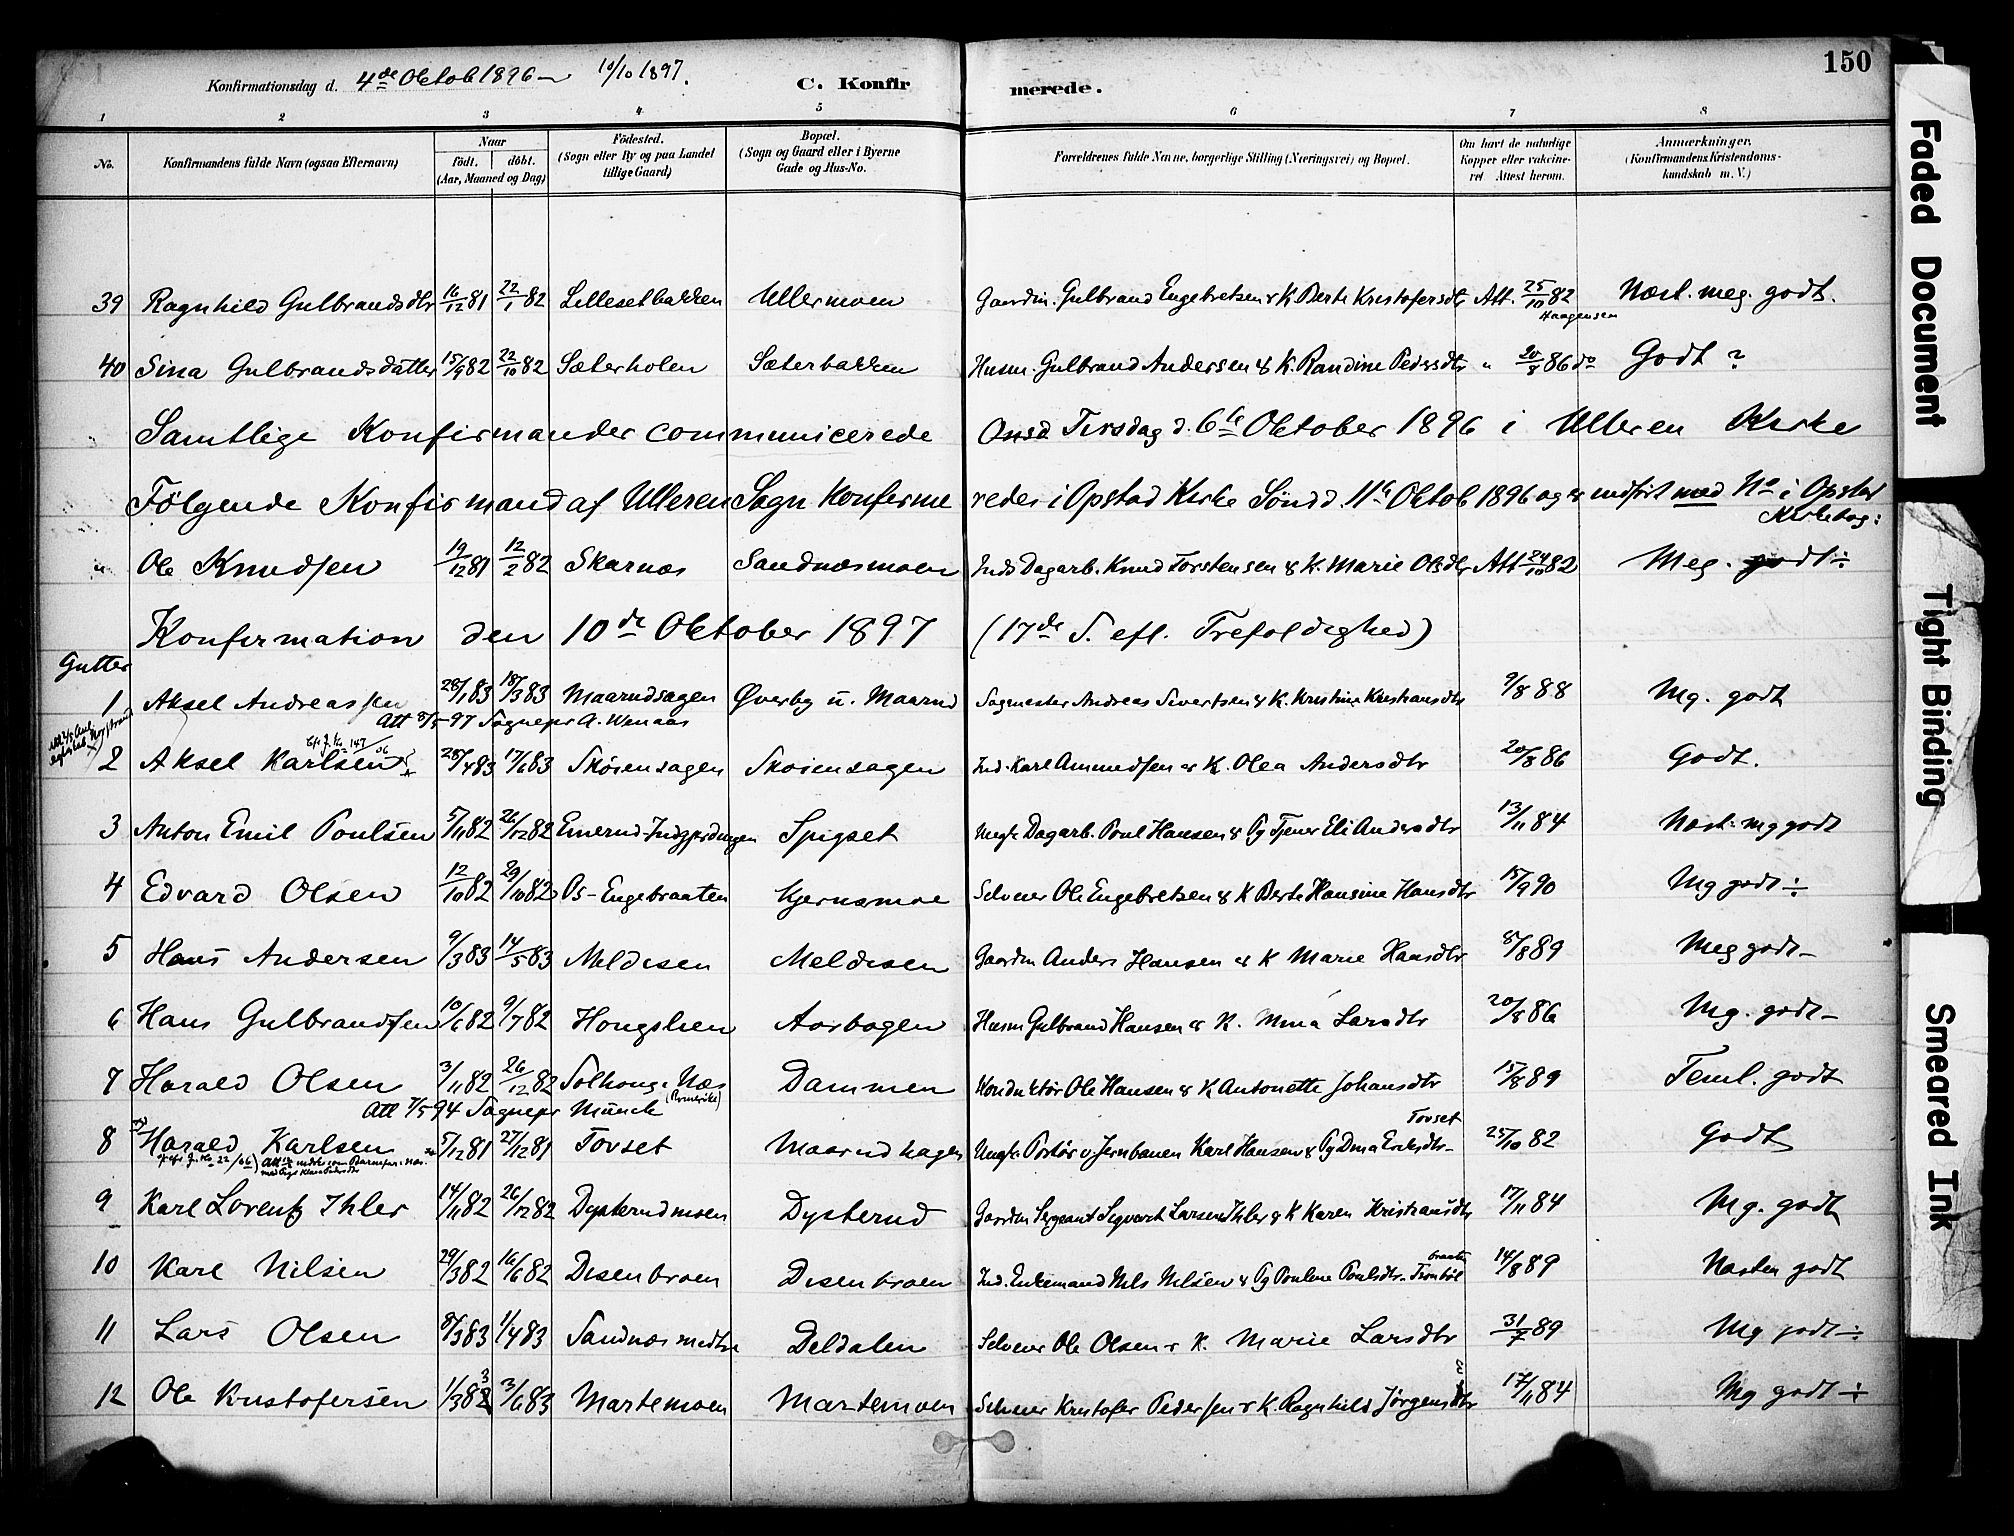 150
Konfirmationsdag d. 4de Oktob 1896 – 10/10 1897.
C. Konfirmerede.
1 2 3 4 5 6 7 8
No. Konfirmandens fulde Navn (ogsaa Efternavn) Naar født. døbt. (Aar, Maaned og Dag) Fødested. (Sogn eller By og paa Landet tillige Gaard) Bopæl. (Sogn og Gaard eller i Byerne Gade og Hus-No. Forældrenes fulde Navne, borgerlige Stilling (Næringsvei) og Bopæl. Om havt de naturlige Kopper eller vakcineret Attest herom. Anmærkninger. (Konfirmandens Kristendomskundskab m. V.)
39 Ragnhild Gulbrandsdtr 16/12 81 22/1 82 Lillesetbakken Ullermoen Gaardm. Gulbrand Engebretsen & K. Berte Kristofersdtr Att. 25/10 82 Haagensen Næst. meg. godt.
40 Sina Gulbrandsdatter 15/9 82 22/10 82 Sæterholen Sæterbakken Husm. Gulbrand Andersen & K. Randine Pedersdtr " 20/8 86 do Godt ?
Samtlige Konfirmander communicerede Onsd Tirsdag d. 6te Oktober 1896 i Ulleren Kirke
Følgende Konfirmand af Ulleren Sogn konfirmeredes i Opstad Kirke Sønd d. 11te Oktob 1896 og er indført med No i Opstad Kirkebog:
Ole Knudsen 19/12 81 12/2 82 Skarnæs Sandnæsmoen Inds Dagarb. Knud Torstensen & K. Marie Olsdtr Att 24/10 82 Meg. godt ÷
Konfirmation den 10de Oktober 1897 (17de S. eft. Trefoldighed)
Gutter
1 Aksel Andreassen 28/1 83 18/3 83 Maarudsagen Øverby u. Maarud Sagmester Andreas Sivertsen & K. Kristine Kristiansdtr 9/8 88 Mg. godt
Att 8/5 97 Sognepr A. Wenaas
2 Aksel Karlsen 28/4 83 17/6 83 Skøiensagen Skoiensagen Ind. Karl Ammundsen & K. Olea Andersdtr 20/8 86 Godt.
3 Anton Emil Poulsen 5/11 82 26/12 82 Emerud-Indgjærdingen Spigset Ungk. Dagarb. Poul Hansen & Pg Tjener Eli Andersdtr 13/11 84 Næst. mg godt
4 Edvard Olsen 12/10 82 29/10 82 Os-Engebraaten Kjernsmoe Selveier Ole Engebretsen & K Berte Hansine Hansdtr 15/9 90 Mg godt ÷
5 Hans Andersen 9/3 83 14/5 83 Meldisen Meldisen Gaardm Anders Hansen & K Marie Hansdtr 8/8 89 Meg godt –
6 Hans Gulbrandsen 10/6 82 9/7 82 Hongslien Aasbogen Husm Gulbrand Hansen & K. Mina Larsdtr 20/8 86 Mg. godt –
7 Harald Olsen 3/11 82 26/12 82 Solhoug i Næs (Romerike) Dammen Konduktør Ole Hansen & K Antonette Johansdtr 15/8 89 Teml. godt
Att 7/5 94 Sognepr Munch
8 Harald Karlsen 5/12 81 27/12 81 Tovset Maarudhagen Ungk. Portør v Jernbanen Karl Hansen & Pg Dina Eriksdtr – Tovset 25/10 82 Godt
9 Karl Lorentz Ihler 14/11 82 26/12 82 Dysterudmoen Dysterud Gaardm Sergeant Sigvart Larsen Ihler & K Karen Kristiansdtr 17/11 84 Mg. godt
10 Karl Nilsen 29/3 82 16/6 82 Disenbroen Disenbroen Ind. Enkemand Nils Nilsen & Pg Pouline Poulsdtr. Trontbøl braaten 14/8 89 Næsten godt
11 Lars Olsen 8/3 83 1/4 83 Sandnæs Deldalen Selveier Ole Olsen & K. Marie Larsdtr 31/7 89 Mg godt ÷
12 Ole Kristofersen 1/3 83 3/6 83 Martemoen Martemoen Selveier Kristofer Pedersen & K. Ragnhild Jørgensdtr 17/11 84 Mg godt ÷
Faded Document
Tight Binding
Smeared Ink